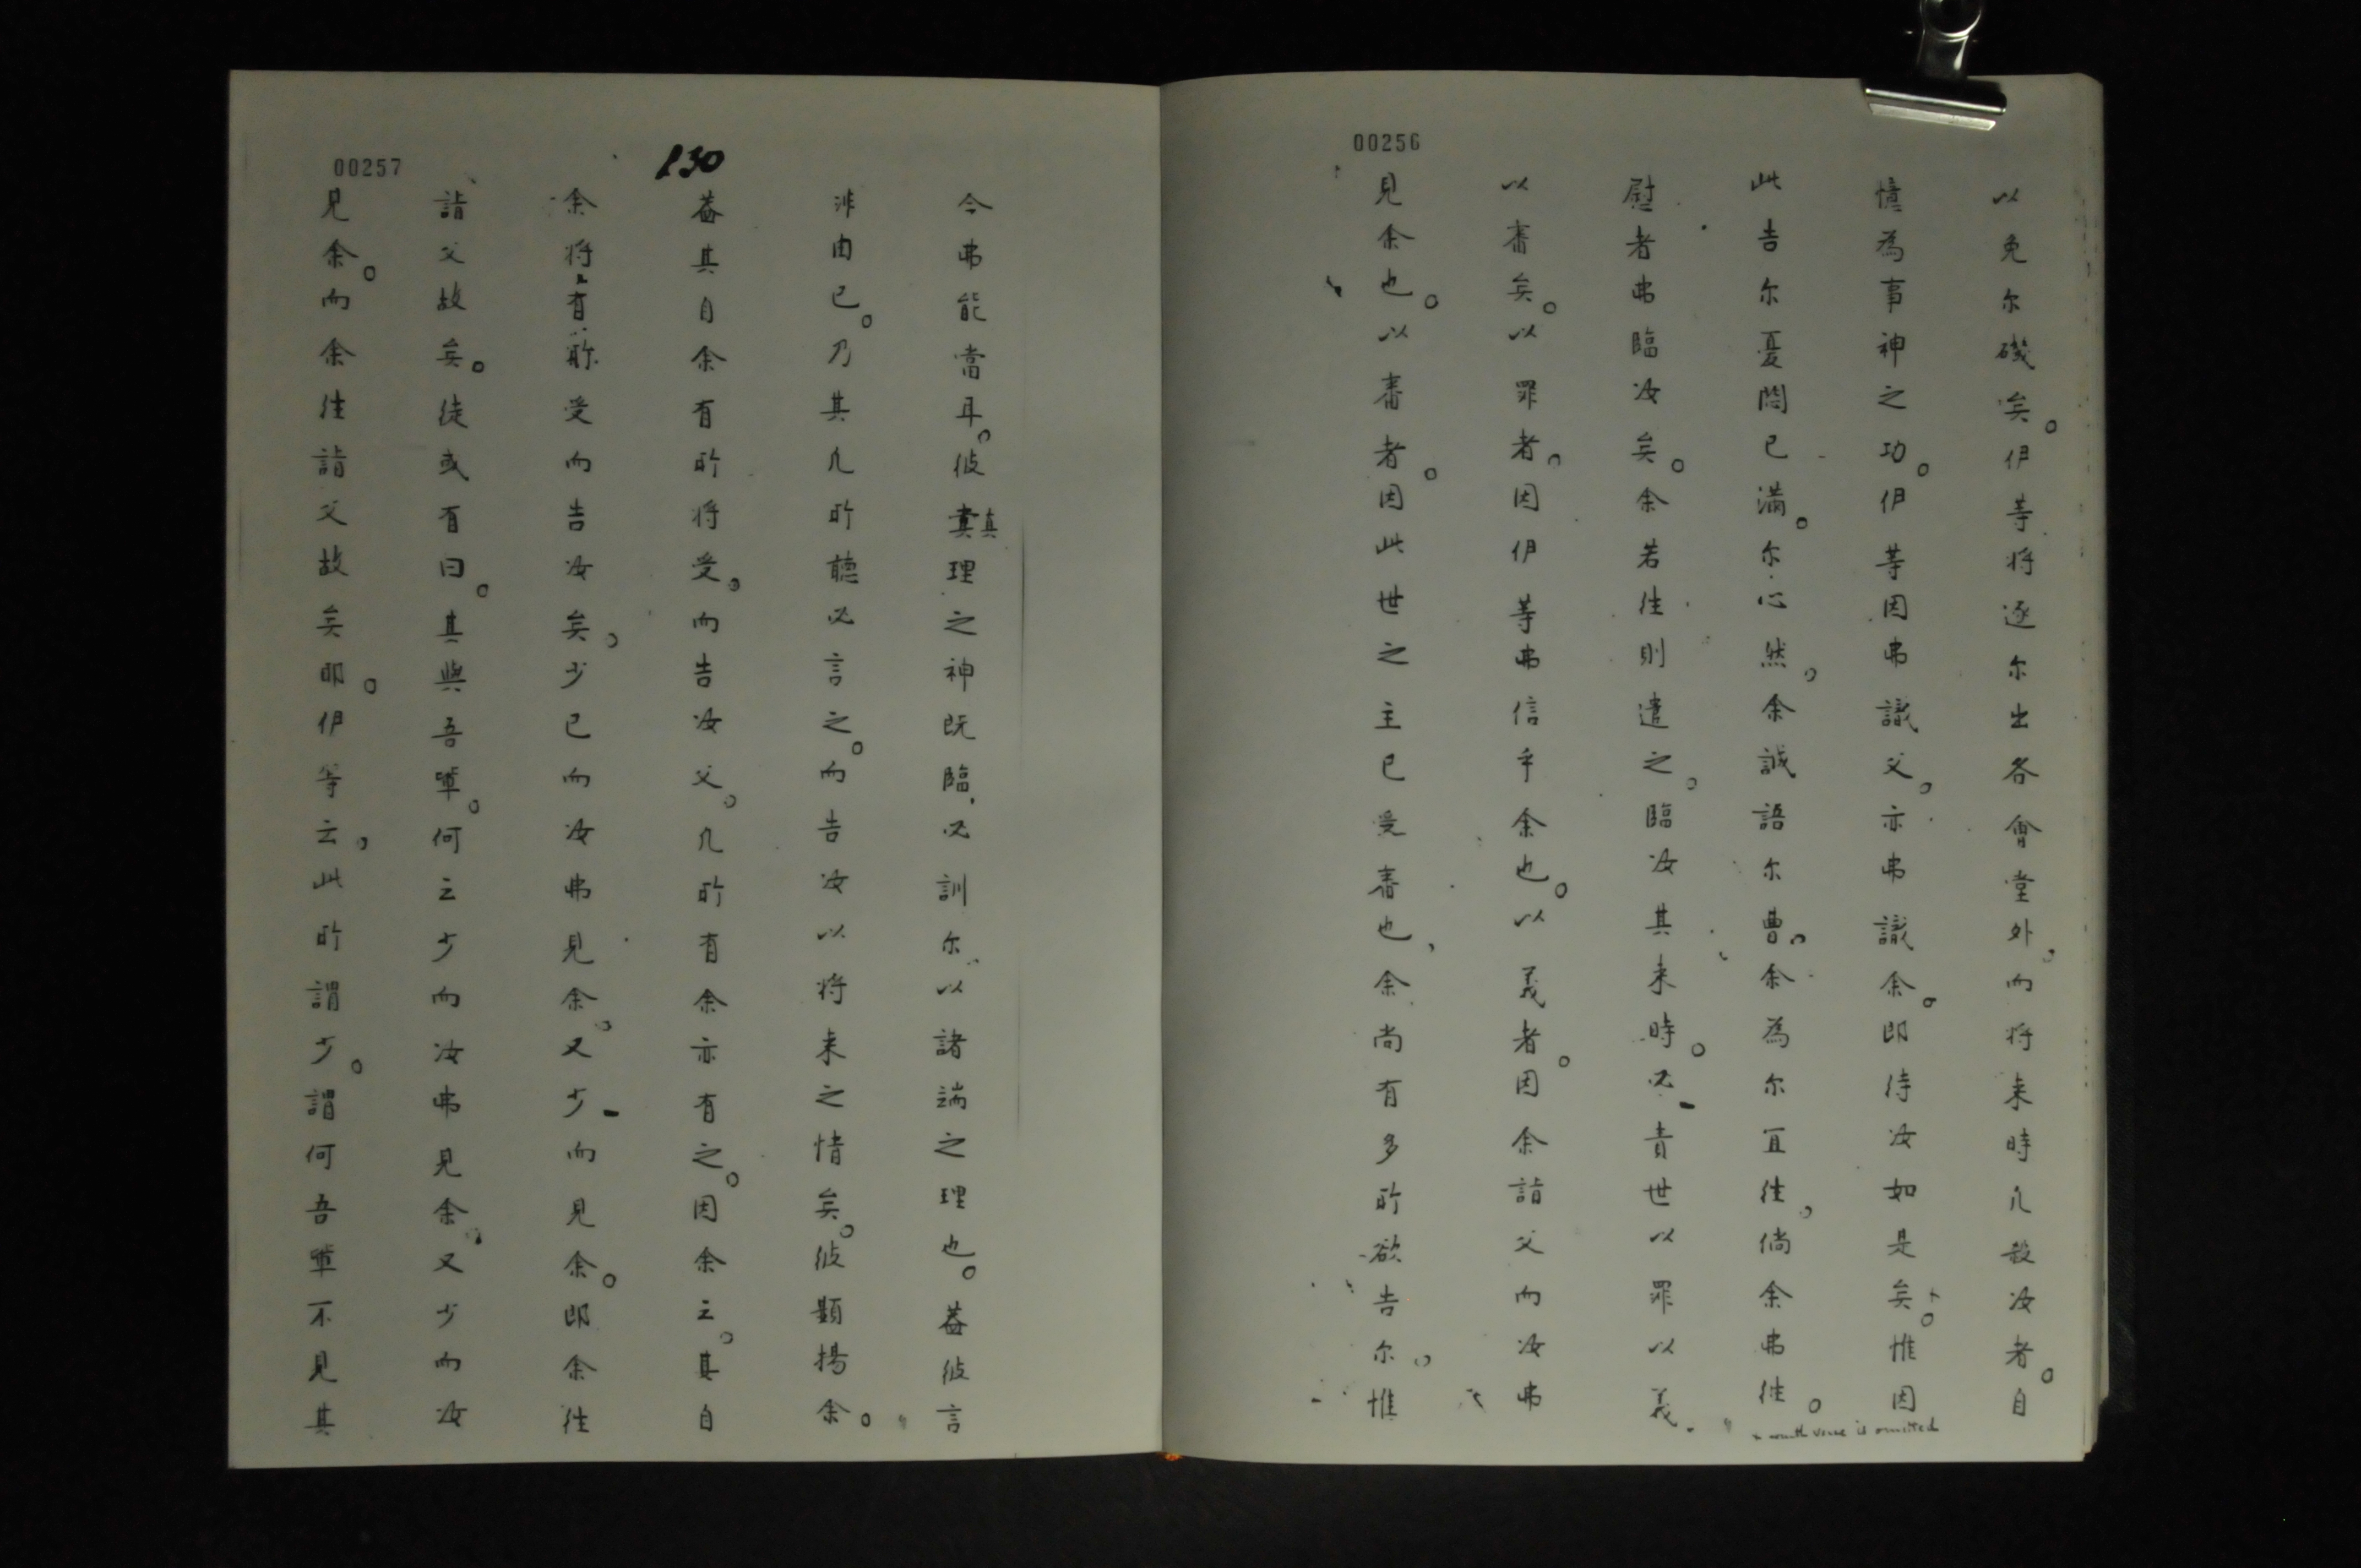 00256
以免尔礙矣。伊等将逐尔出各會堂外。而将来時凡殺汝者。自
憶為事神之功。伊等因弗識父。亦弗識余。即待汝如是矣。惟因
此告尔憂悶已滿尔心然。余誠語尔曹。余為尔宜往。倘余弗往。
慰者弗臨汝矣。余若往則遣之。臨汝其来時。必責世以罪以義
以審矣。以罪者。因伊等弗信乎余也。以義者。因余詣父而汝弗
見余也。以審者。因此世之主已受審也。余尚有多所欲告尔。惟
verse is omitted
00257
130
今弗能當耳。彼真真理之神既臨。必訓尔以諸端之理也。蓋彼言
非由已。乃其凡所聽必言之。而告汝以将来之情矣。彼顯揚余。
蓋其自余有所将受。而告汝父。凡所有余亦有之。因余云。其自
余将有所受而告汝矣。少已而汝弗見余。又少而見余。即余往
詣父故矣。徒或有曰。其與吾軰。何云少而汝弗見余。又少而汝
見余。而余往詣父故矣耶。伊等云。此所謂少。謂何吾軰不見其